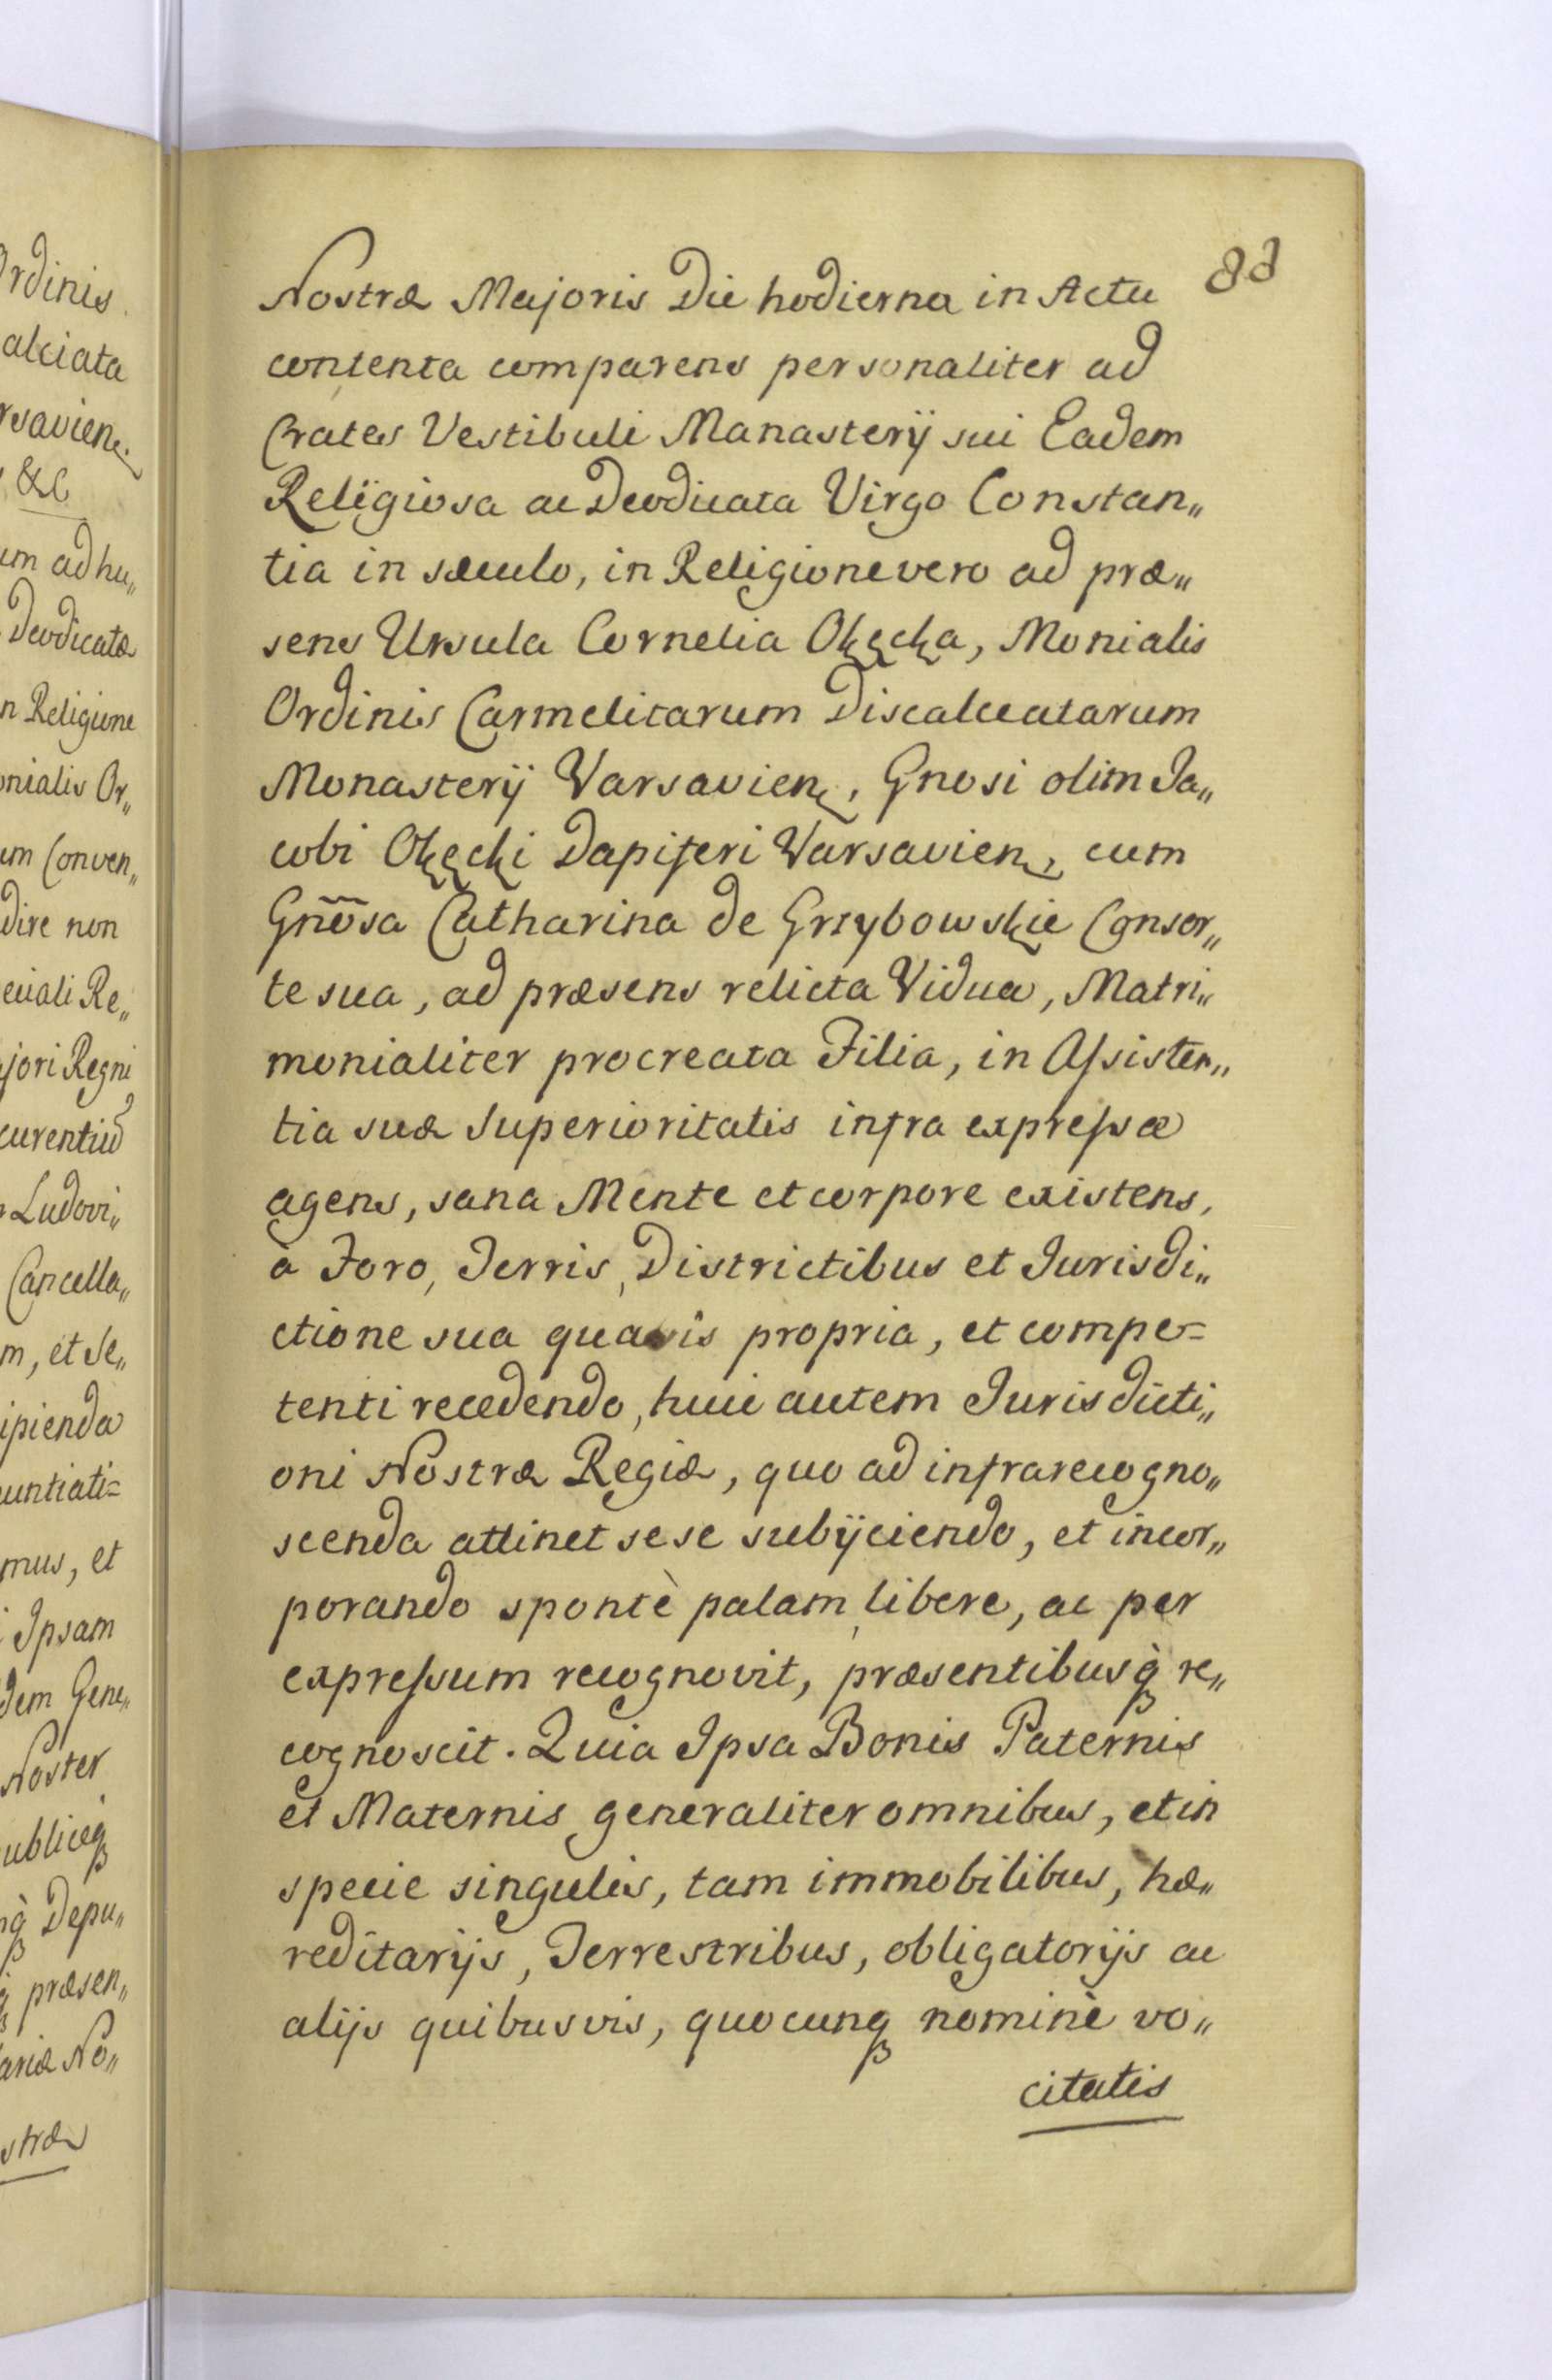 rdinis
alciata
rsavien.
&C
um ad hu„
Deodicatæ
n Religione
onialis Or„
um Conven„
dire non
eciali Re„
jori Regni
curentiu
Ludovi„
Cancella„
m, et Se„
ipienda
untiati=
mus, et
Ipsam
dem Gene„
Noster
ublicęq
q Depu„
præsen„
ariæ No„
stræ
88
Nostræ Majoris Die hodierna in Actu
contenta comparens personaliter ad
Crates Vestibuli Manasterÿ sui Eadem
Religiosa ac Deodicata Virgo Constan„
tia in sæculo, in Religione vero ad præ„
sens Ursula Cornelia Okęcka, Monialis
Ordinis Carmelitarum Discalceatarum
Monasterÿ Varsavien, Gnosi olim Ja„
cobi Okęcki Dapiferi Varsavien, cum
Gñosa Catharina de Grzybowskie Consor„
te sua, ad præsens relicta Vidua, Matri„
monialiter procreata Filia, in Assisten„
tia suæ Superioritatis infra expressæ
agens, sana Mente et corpore existens,
à Foro, Terris, Districtibus et Jurisdi„
ctione sua quavis propria, et compe=
tenti recedendo, huic autem Jurisdicti„
oni Nostræ Regiæ, quo ad infrarecogno„
scenda attinet sese subÿciendo, et incor„
porando spontè palam, libere, ac per
expressum recognovit, præsentibusq re„
cognoscit. Quia Ipsa Bonis Paternis
et Maternis generaliter omnibus, et in
specie singulis, tam immobilibus, hæ„
reditarijs, Terrestribus, obligatorijs ac
alijs quibusvis, quocunq nominè vo„
citatis